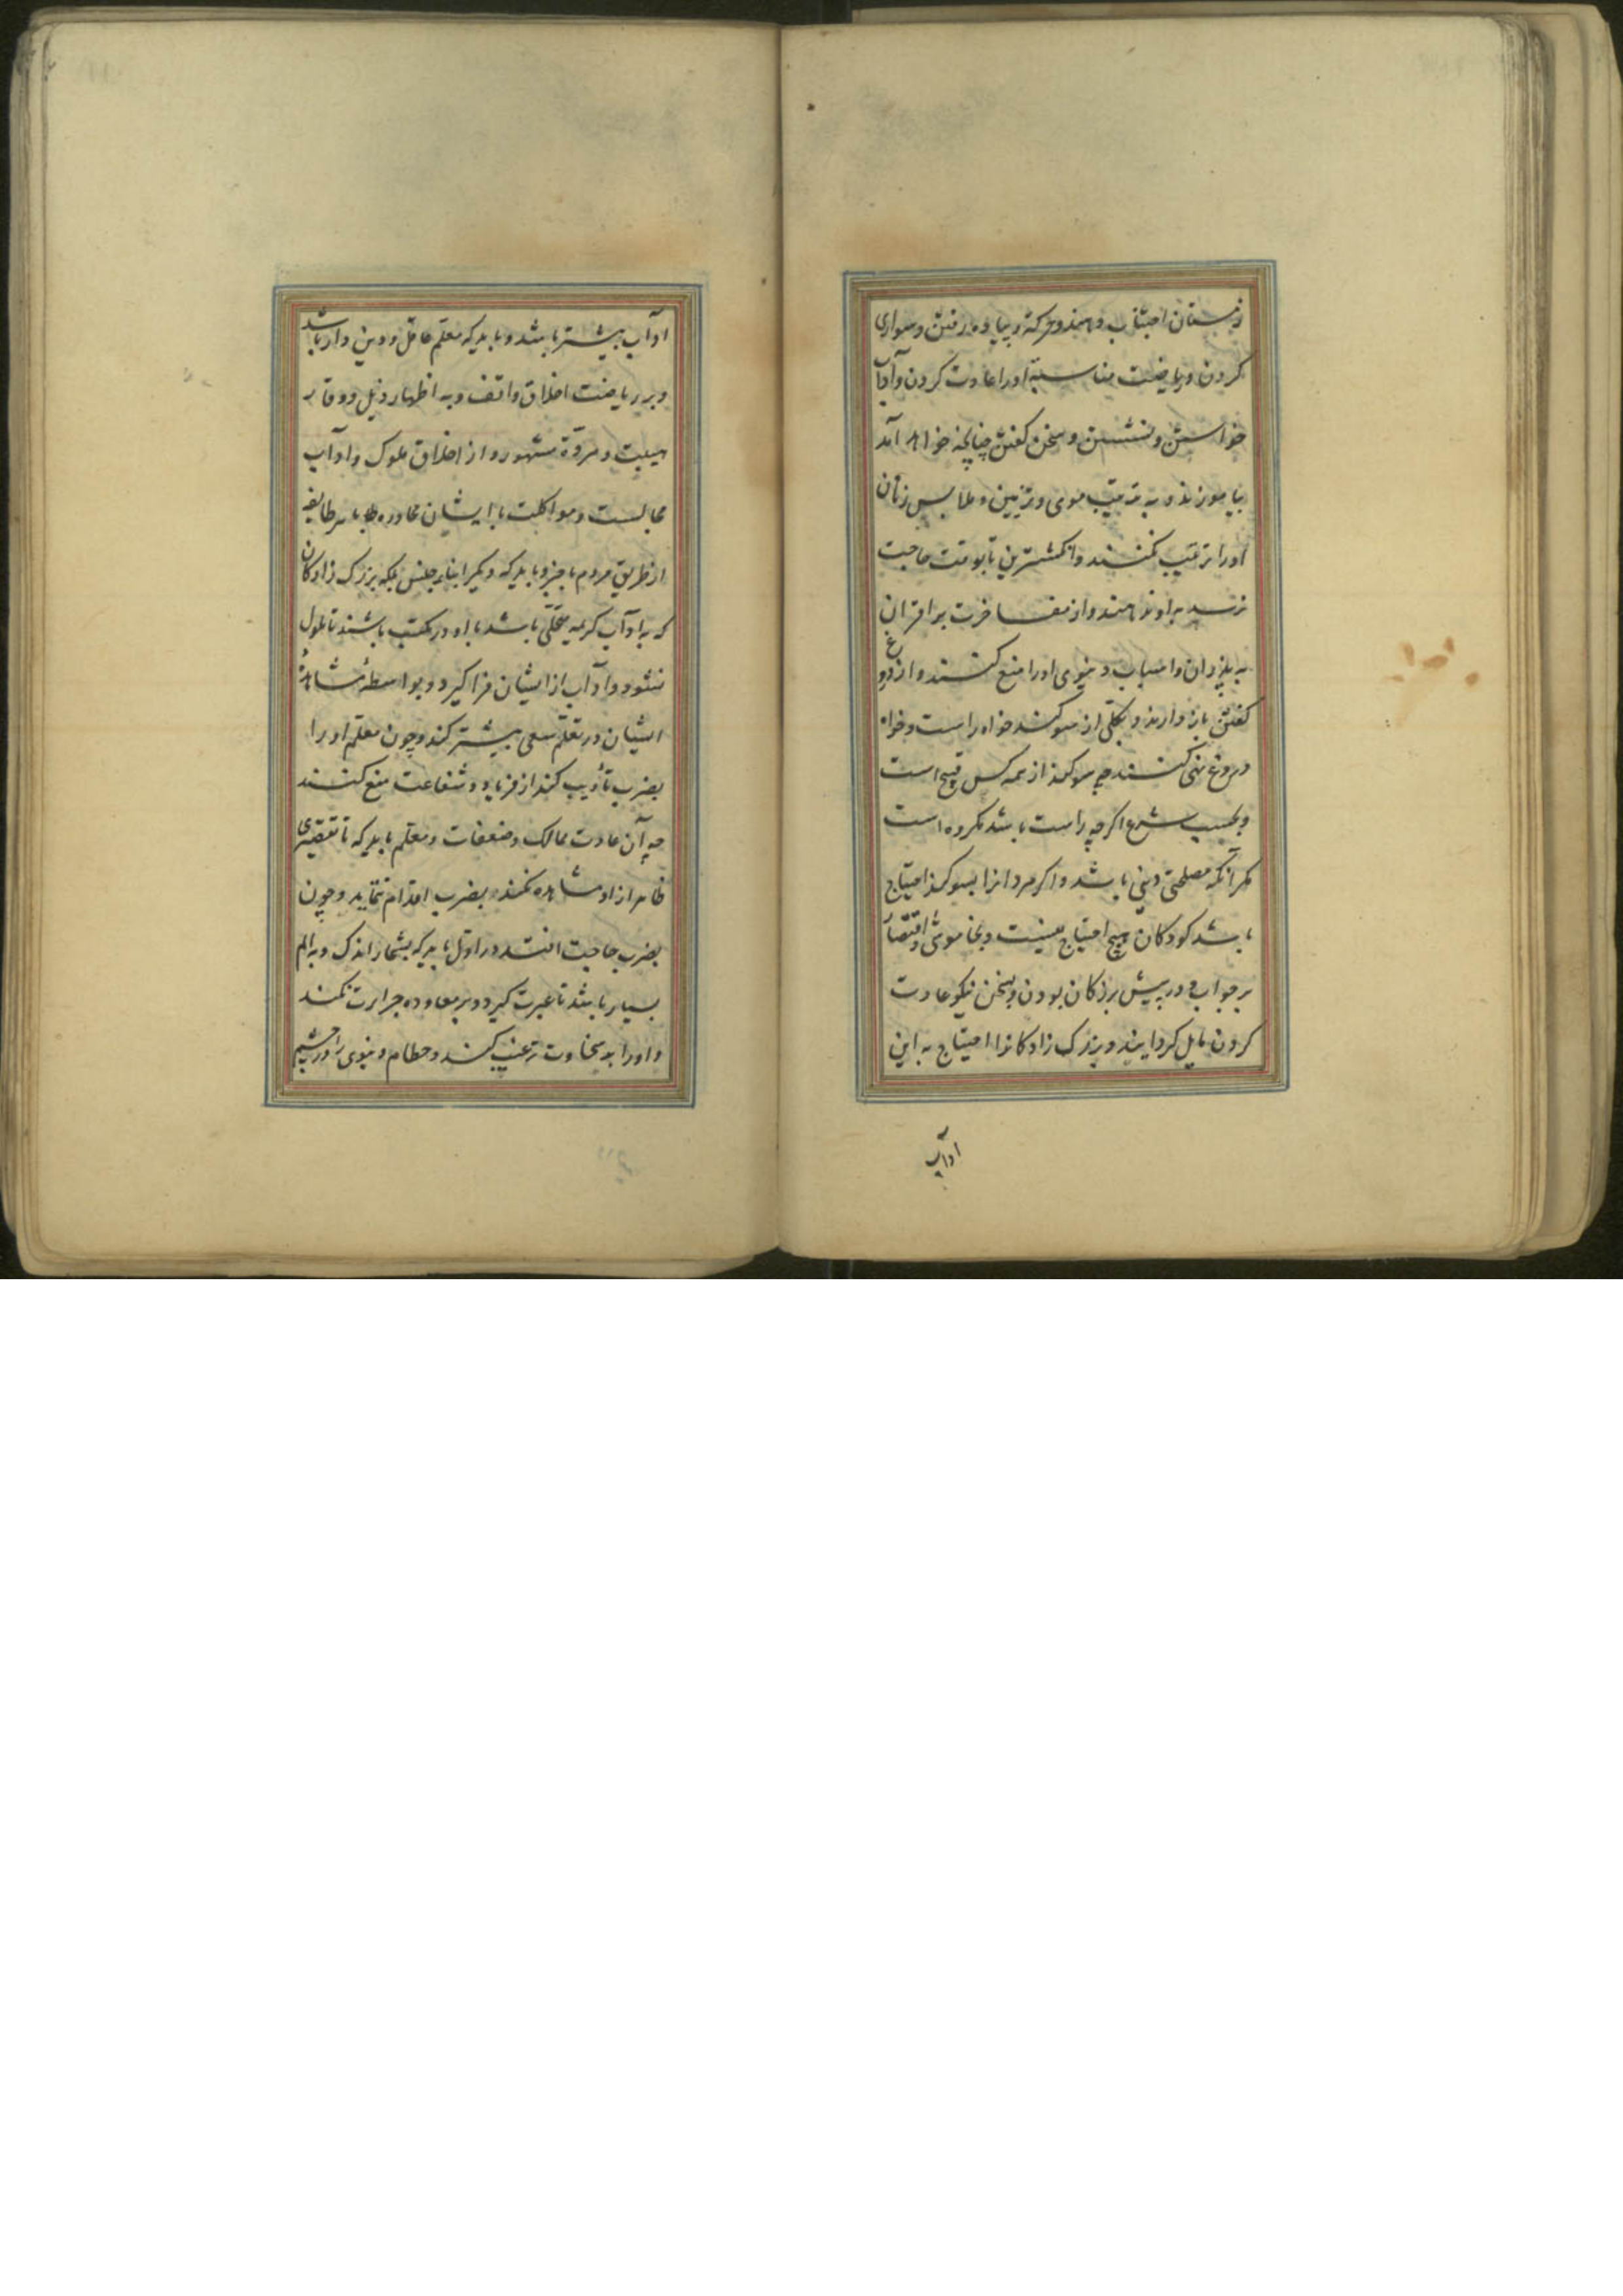 زمستان اجتناب دهند و حرکة و پیاده رفتن و سواری
کردن و ریاضت مناسبة او را عادت کردن و آداب
خواستن و نشستن و سخن کفتن چنانچه خواهد آمد
بیاموزند و به تربیت موی و تزیین و ملابس زنان
او را ترغیب نکنند و انکشترین تا بوقت حاجت
نرسد به او ندهند و از مفاخرت بر اقران
به پدران و اسباب دنیوی او را منع کنند و از دروغ
کفتن باز دارند و بکلی از سوکند خواه راست و خواه
دروغ نهی کنند چه سوکند از همه کس قبیح است
و بحسب شرع اکر چه راست باشد مکروه است
مکر آنکه مصلحتی دینی باشد و اکر مردانرا بسوکند احتیاج
باشد کودکان هیچ احتیاج نیست و بخاموشی و اقتصار
بر جواب و در پیش بزرکان بودن و بسخن نیکو عادت
کردن مایل کردانند و بزرک زادکانرا احتیاج به این
اداب
اداب بیشتر باشد و باید که معلم عاقل و دین دار باشد
و بر ریاضت اخلاق واقف و به اظهار ذیل و وقار
هیبت و مروة مشهور و از اخلاق ملوک و اداب
مجالست و مواکلت با ایشان محاوره با هر طایفه
از طریق مردم باخبر و باید که دیکر ابناء جنس بلکه بزرک زادکان
که به اداب کریمه متحلی باشد با او در مکتب باشند تا ملول
نشود و اداب از ایشان فرا کیرد و بواسطهٔ مشاهدهٔ
ایشان در تعلم سعی بیشتر کند و چون معلم او را
بضرب تأدیب کند از فریاد و شفاعت منع کنند
چه آن عادت ممالک و ضعفات و معلم باید که تا تقصیری
ظاهر از او مشاهده نکند بضرب اقدام ننماید و چون
بضرب حاجت افتد در اول باید که بشمار اندک و به الم
بسیار باشد تا عبرت کیرد و بر معاوده جرات نکند
و او را به سخاوت ترغیب کنند و حطام دنیوی را در چشم